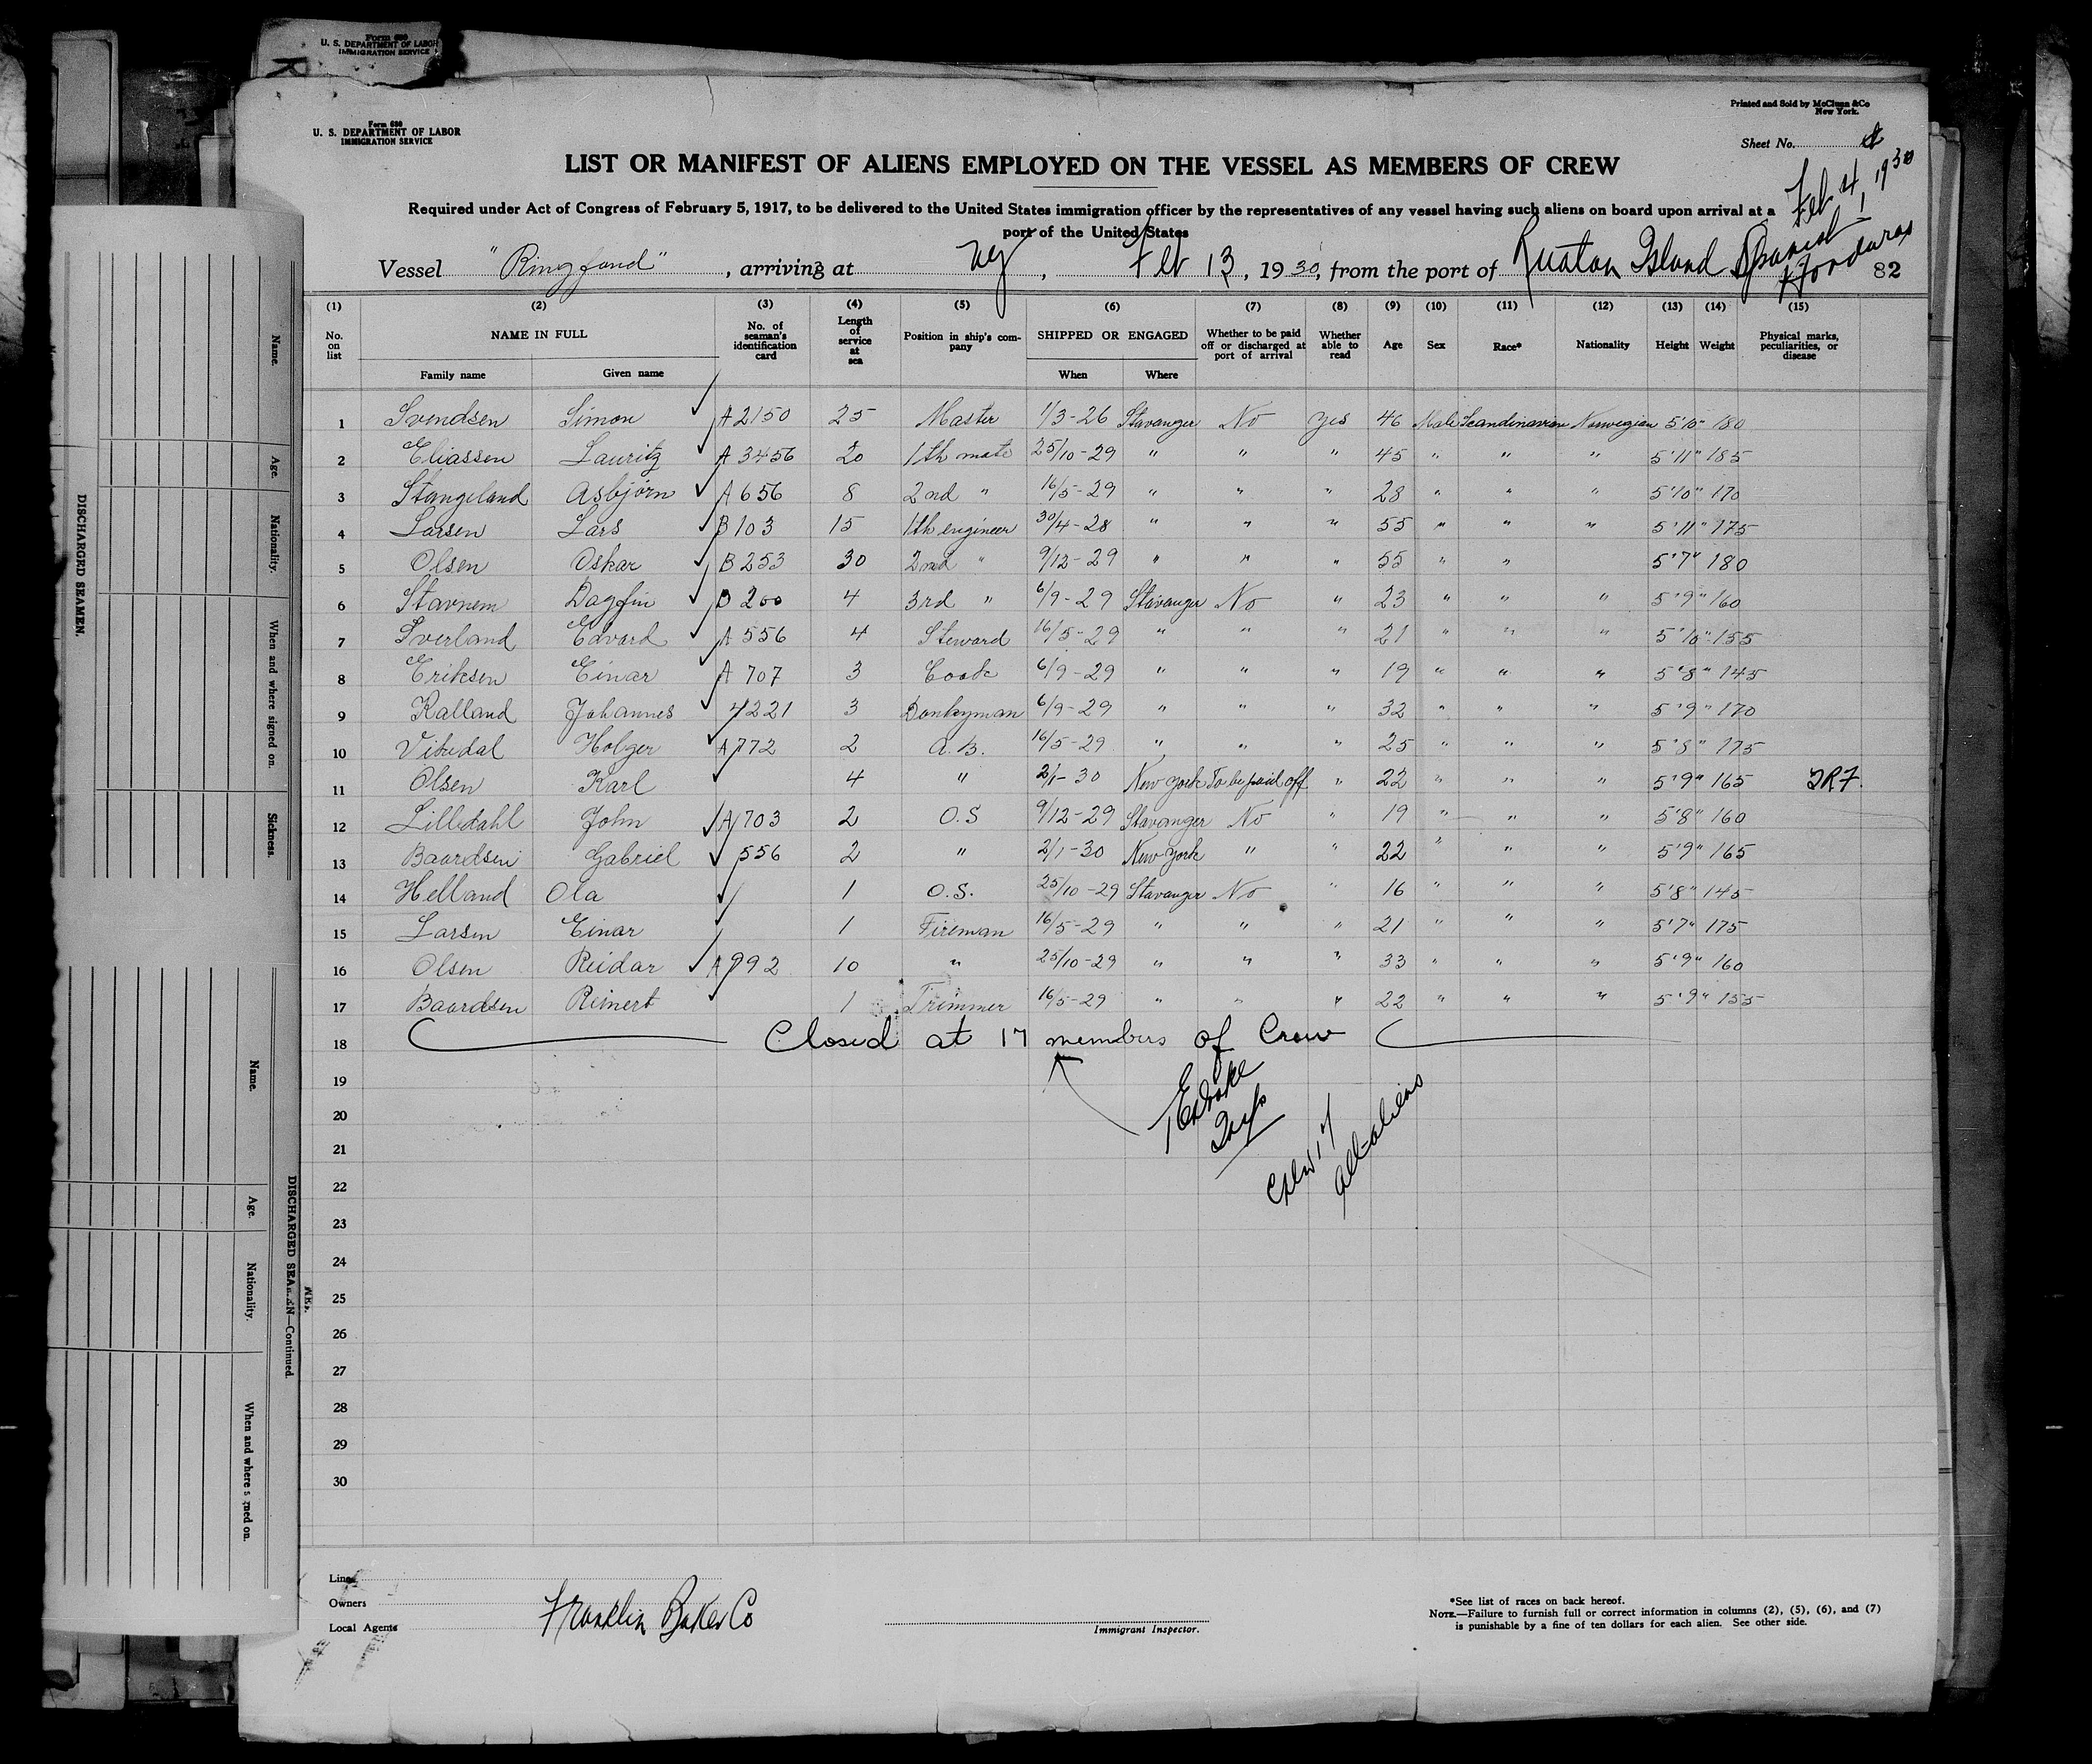 Form 680
U. S. DEPARTMENT OF LABOR
IMMIGRATION SERVICE
Printed and Sold by McClunn & Co
New York.
Form 680
U. S. DEPARTMENT OF LABOR
IMMIGRATION SERVICE
Sheet No.
LIST OR MANIFEST OF ALIENS EMPLOYED ON THE VESSEL AS MEMBERS OF CREW
Feb 4, 1930
Required under Act of Congress of February 5, 1917, to be delivered to the United States immigration officer by the representatives of any vessel having such aliens on board upon arrival at a
port of the United States
Vessel "Ringfond", arriving at Ny, Feb 13, 1930, from the port of Ruatan Island Spanish Honduras
82
(1) (2) (3) (4) (5) (6) (7) (8) (9) (10) (11) (12) (13) (14) (15)
No. on list NAME IN FULL No. of seaman's identification card Length of service at sea Position in ship's company SHIPPED OR ENGAGED Whether to be paid off or discharged at port of arrival Whether able to read Age Sex Race* Nationality Height Weight Physical marks, peculiarities, or disease
Family name Given name When Where
1 Svendsen Simon A 2150 25 Master 1/3-26 Stavanger No Yes 46 Male Scandinavian Norwegian 5'10" 180
2 Eliassen Lauritz A 3456 20 1th mate 25/10-29 " " " 45 " " " 5'11" 185
3 Stangeland Asbjörn A 656 8 2nd " 16/5-29 " " " 28 " " " 5'10" 170
4 Larsen Lars B 103 15 1th engineer 30/4-28 " " " 55 " " " 5'11" 175
5 Olsen Oskar B 253 30 2nd " 9/12-29 " " " 55 " " 5'7" 180
6 Stavnem Dagfin B 200 4 3rd " 6/9-29 Stavanger No " 23 " " " 5'9" 160
7 Sverland Edvard A 556 4 Steward 16/5-29 " " " 21 " " " 5'10" 155
8 Eriksen Einar A 707 3 Cook 6/9-29 " " " 19 " " " 5'8" 145
9 Kalland Johannes 4221 3 Donkyman 6/9-29 " " " 32 " " " 5'9" 170
10 Vitsdal Holger A 772 2 A.B. 16/5-29 " " " 25 " " " 5'8" 175
11 Olsen Karl 4 " 2/1-30 New York To be paid off " 22 " " " 5'9" 165
12 Lilledahl John A 703 2 O.S 9/12-29 Stavanger No " 19 " " " 5'8" 160
13 Baardsen Gabriel 556 2 " 2/1-30 New York " " 22 " " " 5'9" 165
14 Helland Ola 1 O.S. 25/10-29 Stavanger No " 16 " " " 5'8" 145
15 Larsen Einar 1 Fireman 16/5-29 " " " 21 " " " 5'7" 175
16 Olsen Reidar A 992 10 " 25/10-29 " " " 33 " " " 5'9" 160
17 Baardsen Reinert 1 Trimmer 16/5-29 " " " 22 " " " 5'9" 155
18 Closed at 17 members of Crew
19
20
21
Crew 17
all aliens
22
23
24
25
26
27
28
29
30
Line
Owners
Local Agents Franklin Baker Co
Immigrant Inspector.
*See list of races on back hereof.
NOTE.—Failure to furnish full or correct information in columns (2), (5), (6), and (7)
is punishable by a fine of ten dollars for each alien. See other side.
DISCHARGED SEAMEN.
Name.
Age.
Nationality.
When and where signed on.
Sickness.
DISCHARGED SEAMEN—Continued.
Name.
Age.
Nationality.
When and where signed on.